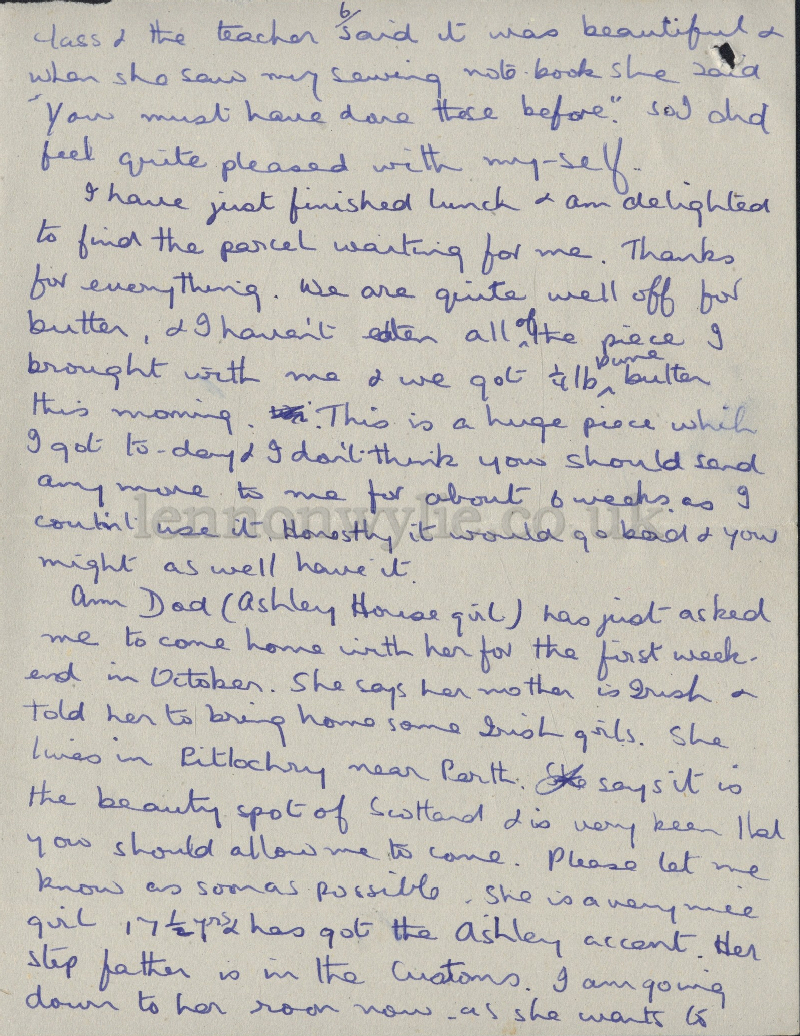 6/
class & the teacher said it was beautiful &
when she saw my sewing note-book she said
"You must have done these before". so I did
feel quite pleased with my-self.
I have just finished lunch & am delighted
to find the parcel waiting for me. Thanks
for everything. We are quite well off for
butter, & I haven't eaten all of the piece I
brought with me & we got ¼lb butter
this morning. This is a huge piece which
I got to-day & I don't think you should send
any more to me for about 6 weeks as I
couldn't use it. Honestly it would go bad & you
might as well have it.
Ann Dod (Ashley House girl) has just asked
me to come home with her for the first week-
end in October. She says her mother is Irish &
told her to bring home some Irish girls. She
lives in Pitlochry near Perth. She says it is
the beauty spot of Scotland & is very keen that
you should allow me to come. Please let me
know as soon as possible. She is a very nice
girl 17½ yrs & has got the Ashley accent. Her
step father is in the Customs. I am going
down to her room now - as she wants to
lennonwylie.co.uk